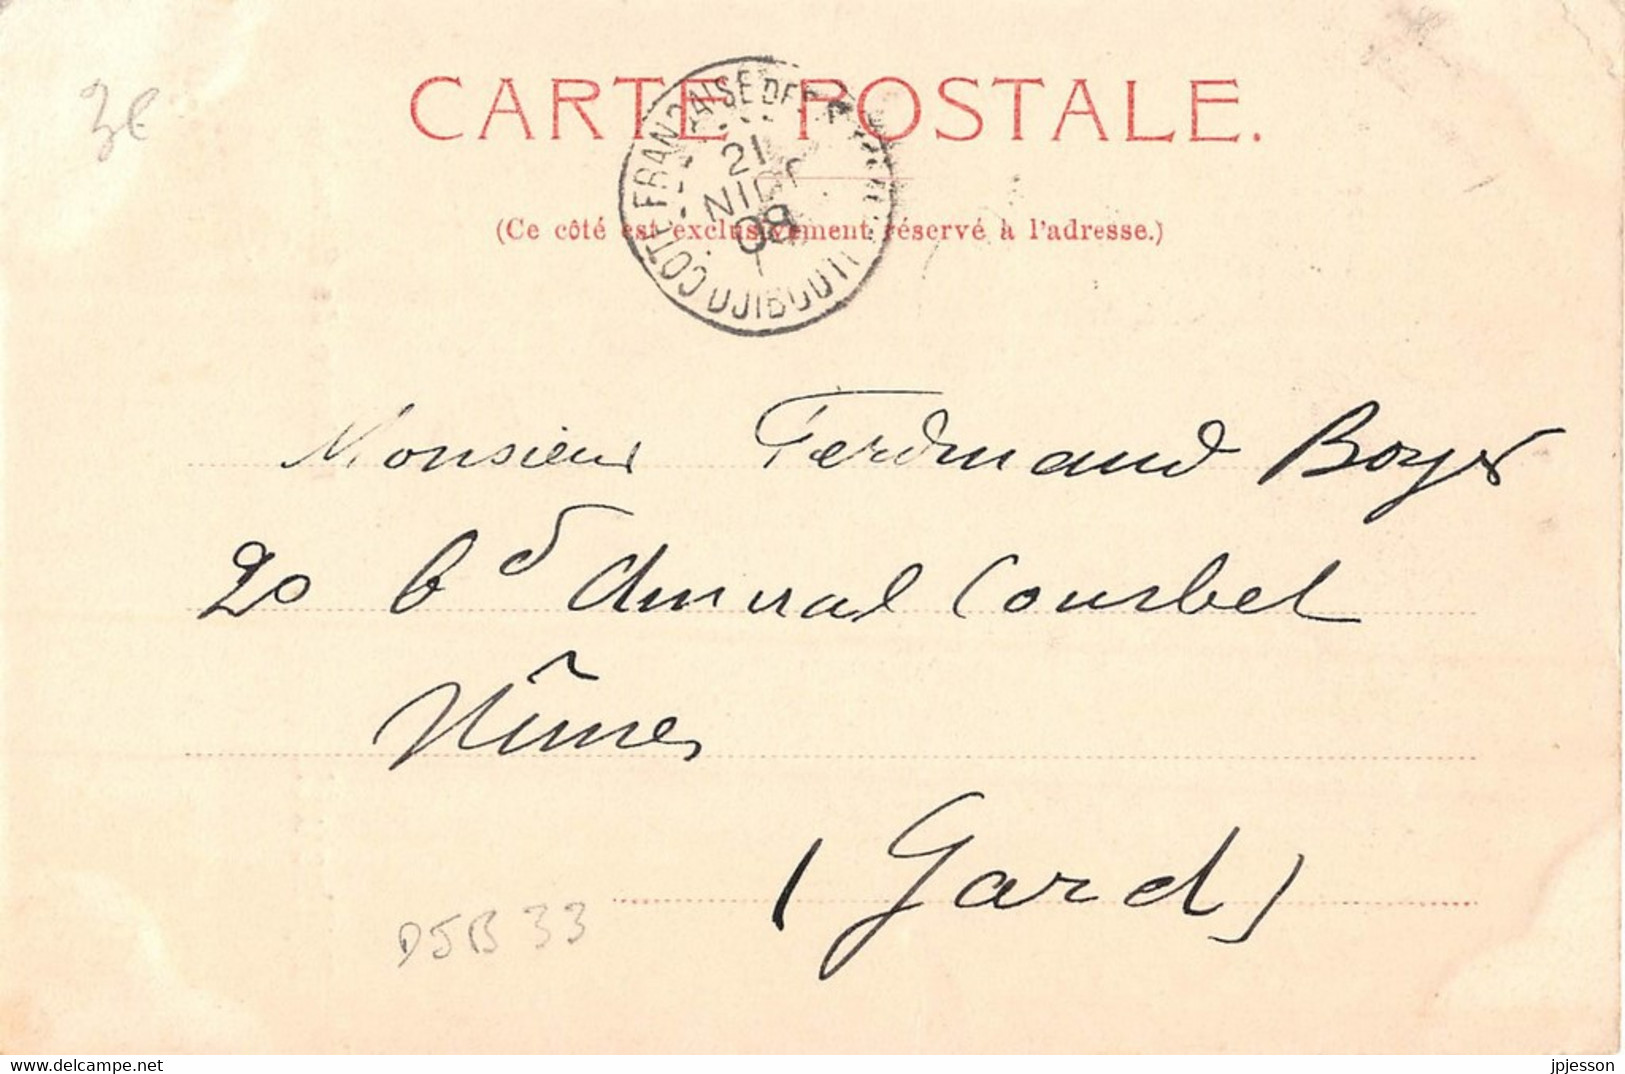 3€
CARTE POSTALE.
(Ce côté est exclusivement réservé à l'adresse.)
COTE FRANCAISE DES
21
JUIN
08
DJIBOUTI
Monsieur Ferdinand Boyer
20 Bd Amiral Courbet
Nîmes
(Gard)
DJB 33
www.delcampe.net
jpjesson